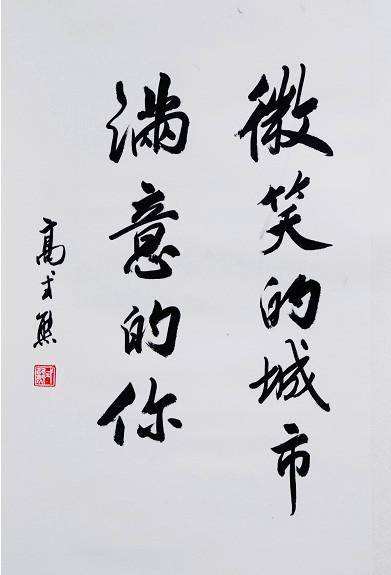 微笑的城市
满意的你
高式熊